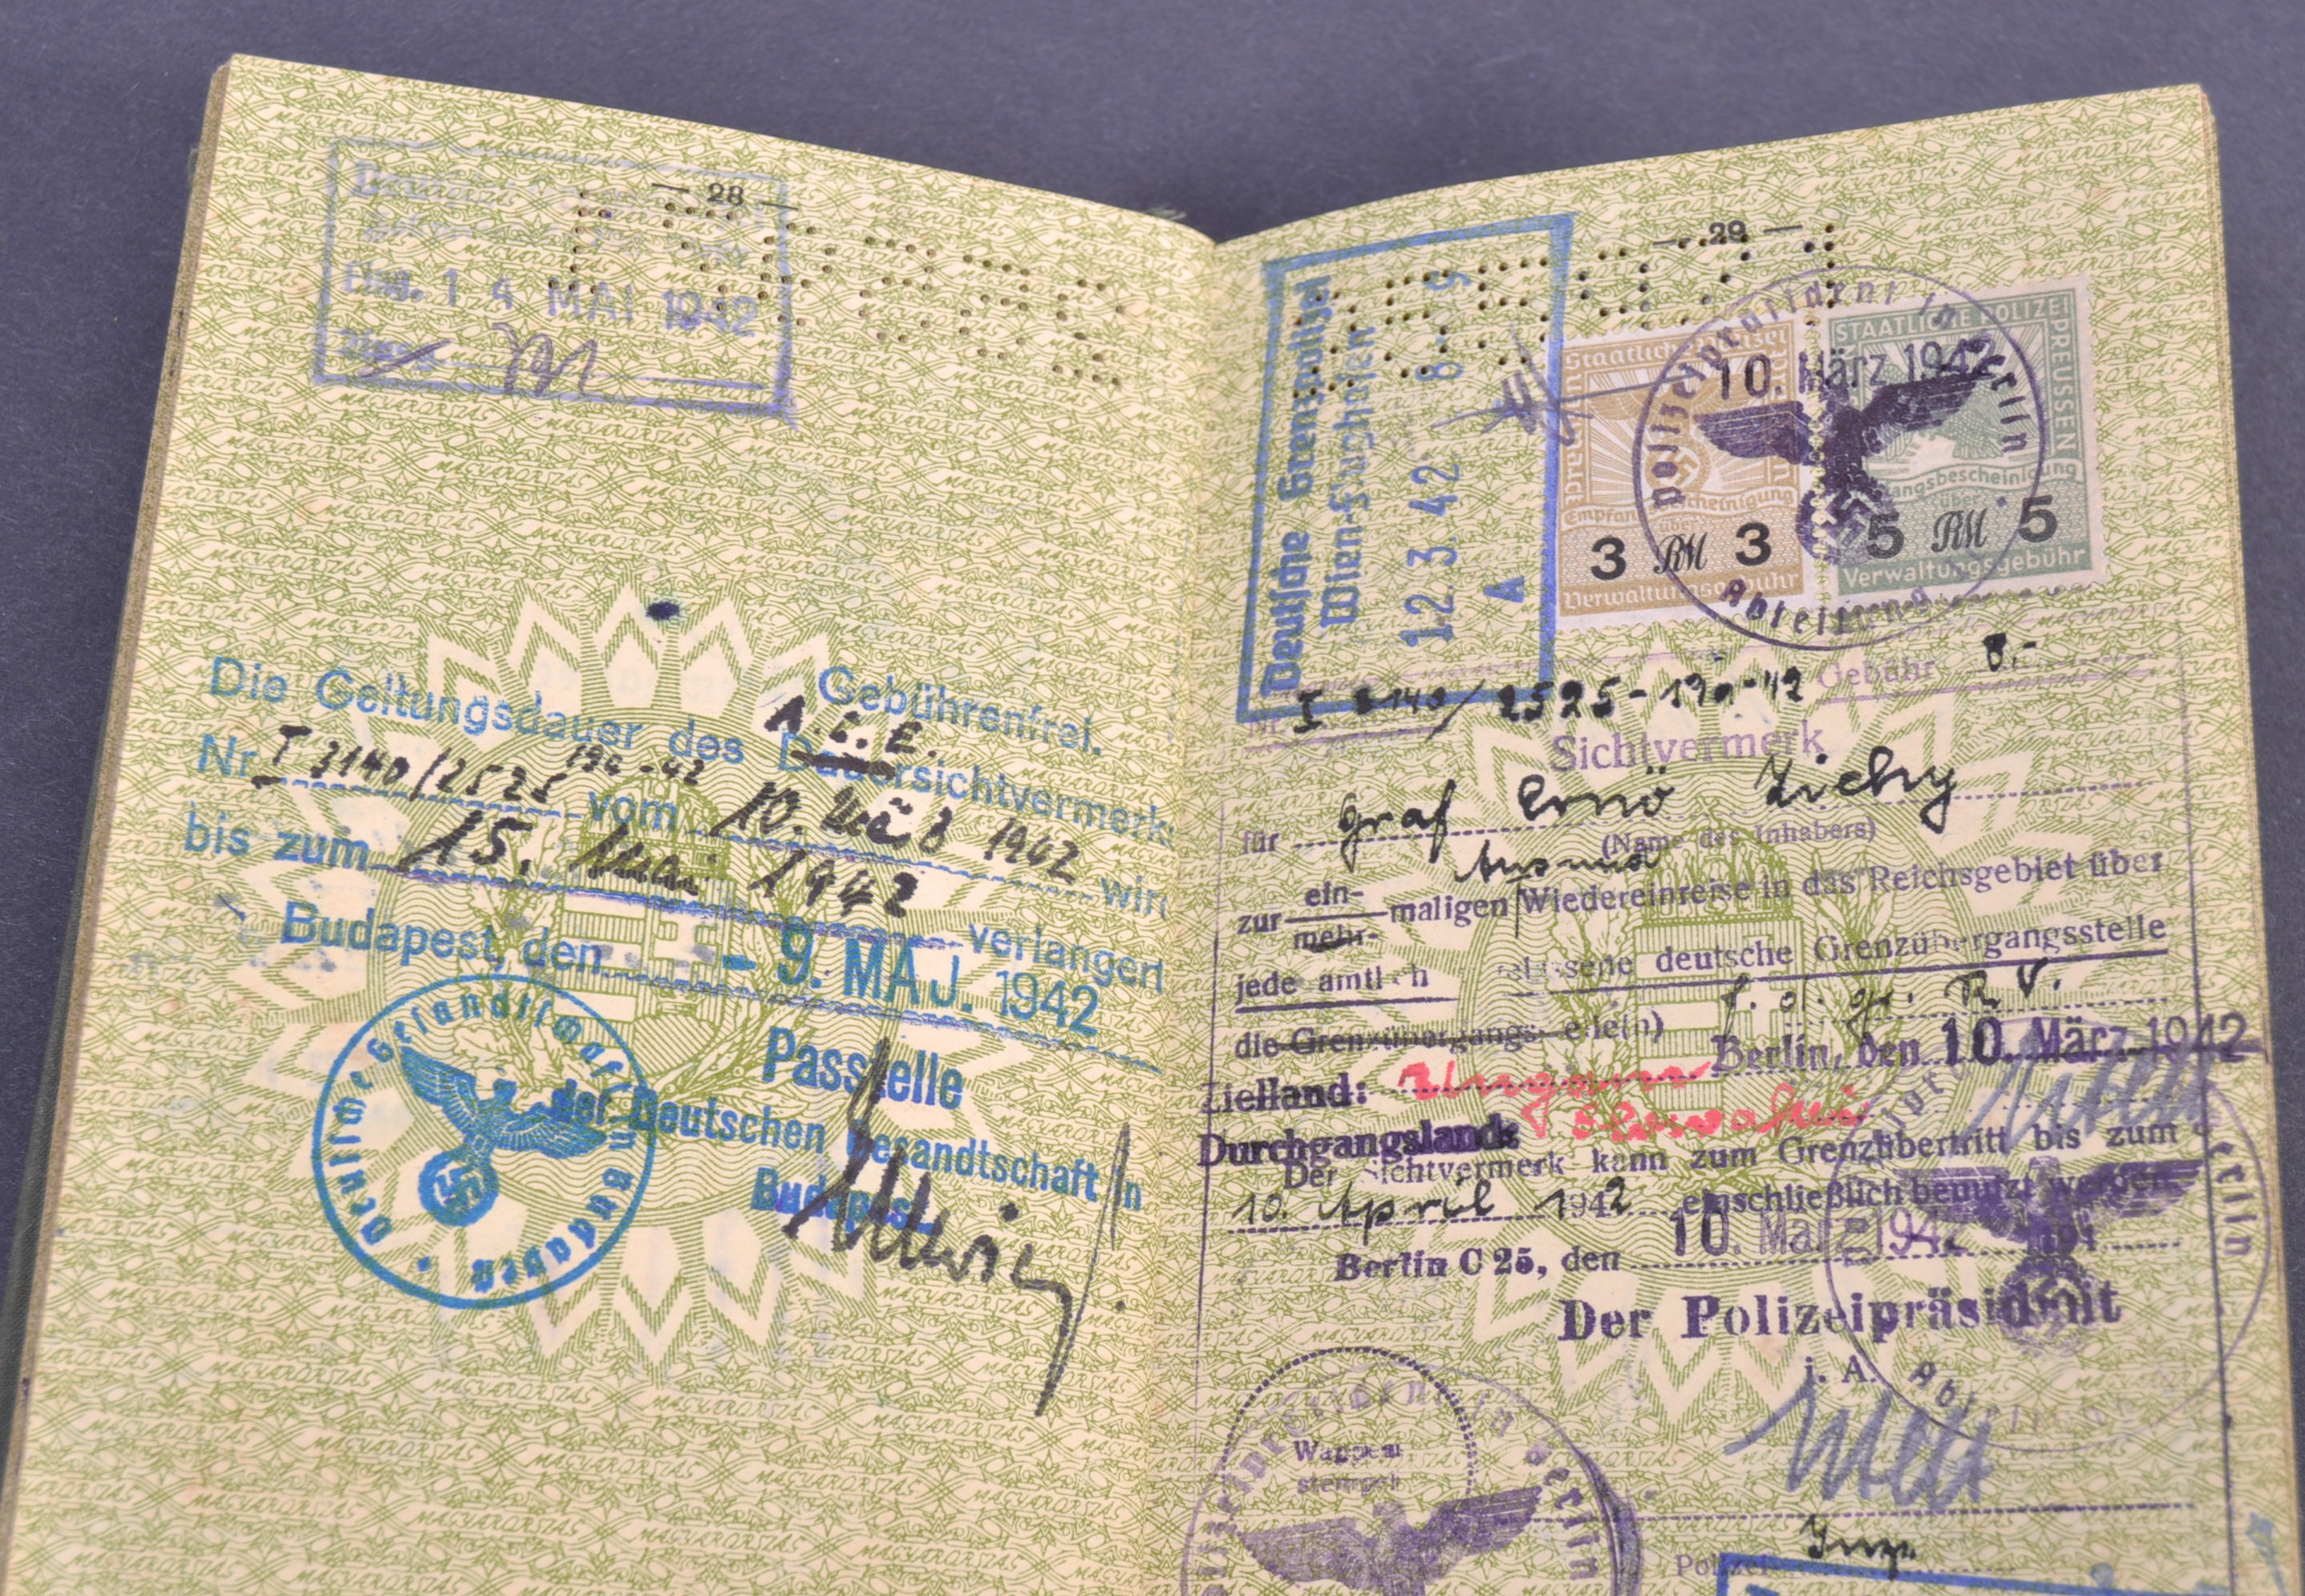 — 28 —
Eing. 14 MAI 1942
Gebührenfrei.
A. E. E.
Die Geltungsdauer des Dauersichtvermerk
Nr I 2140/2525 190-42 vom 10. 1942 wird
bis zum 15. 1942 verlängert
Budapest, den - 9. MAJ. 1942
Passstelle
der Deutschen Gesandtschaft in
Budapest
Deutsche Gesandtschaft in Budapest
— 29 —
Deutsche Grenzpolizei
Wien-Flughafen
12.3.42 8-9
A
Staatliche Polizei
Preußen
Empfangsbescheinigung
über
3 RM 3
Verwaltungsgebühr
STAATLICHE POLIZEI
PREUSSEN
Empfangsbescheinigung
über
5 RM 5
Verwaltungsgebühr
Polizeipräsident in Berlin
10. März 1942
Abteilung
Nr. I 2140/2525-190-42 Gebühr 8.-
Sichtvermerk
für Graf Ernö Zichy
(Name des Inhabers)
zur ein- maligen Wiedereinreise in das Reichsgebiet über
mehr-
jede amtlich zugelassene deutsche Grenzübergangsstelle
f. d. gr. R. V.
die Grenzübergangsstelle(n)
Berlin, den 10. März 1942
Zielland: Ungarn
Durchgangsland: Slowakei
Der Sichtvermerk kann zum Grenzübertritt bis zum
10. April 1942 einschließlich benutzt werden.
Berlin C 25, den 10. März 1942 194
Der Polizeipräsident
j. A.
Wappen
stempel
Polizei